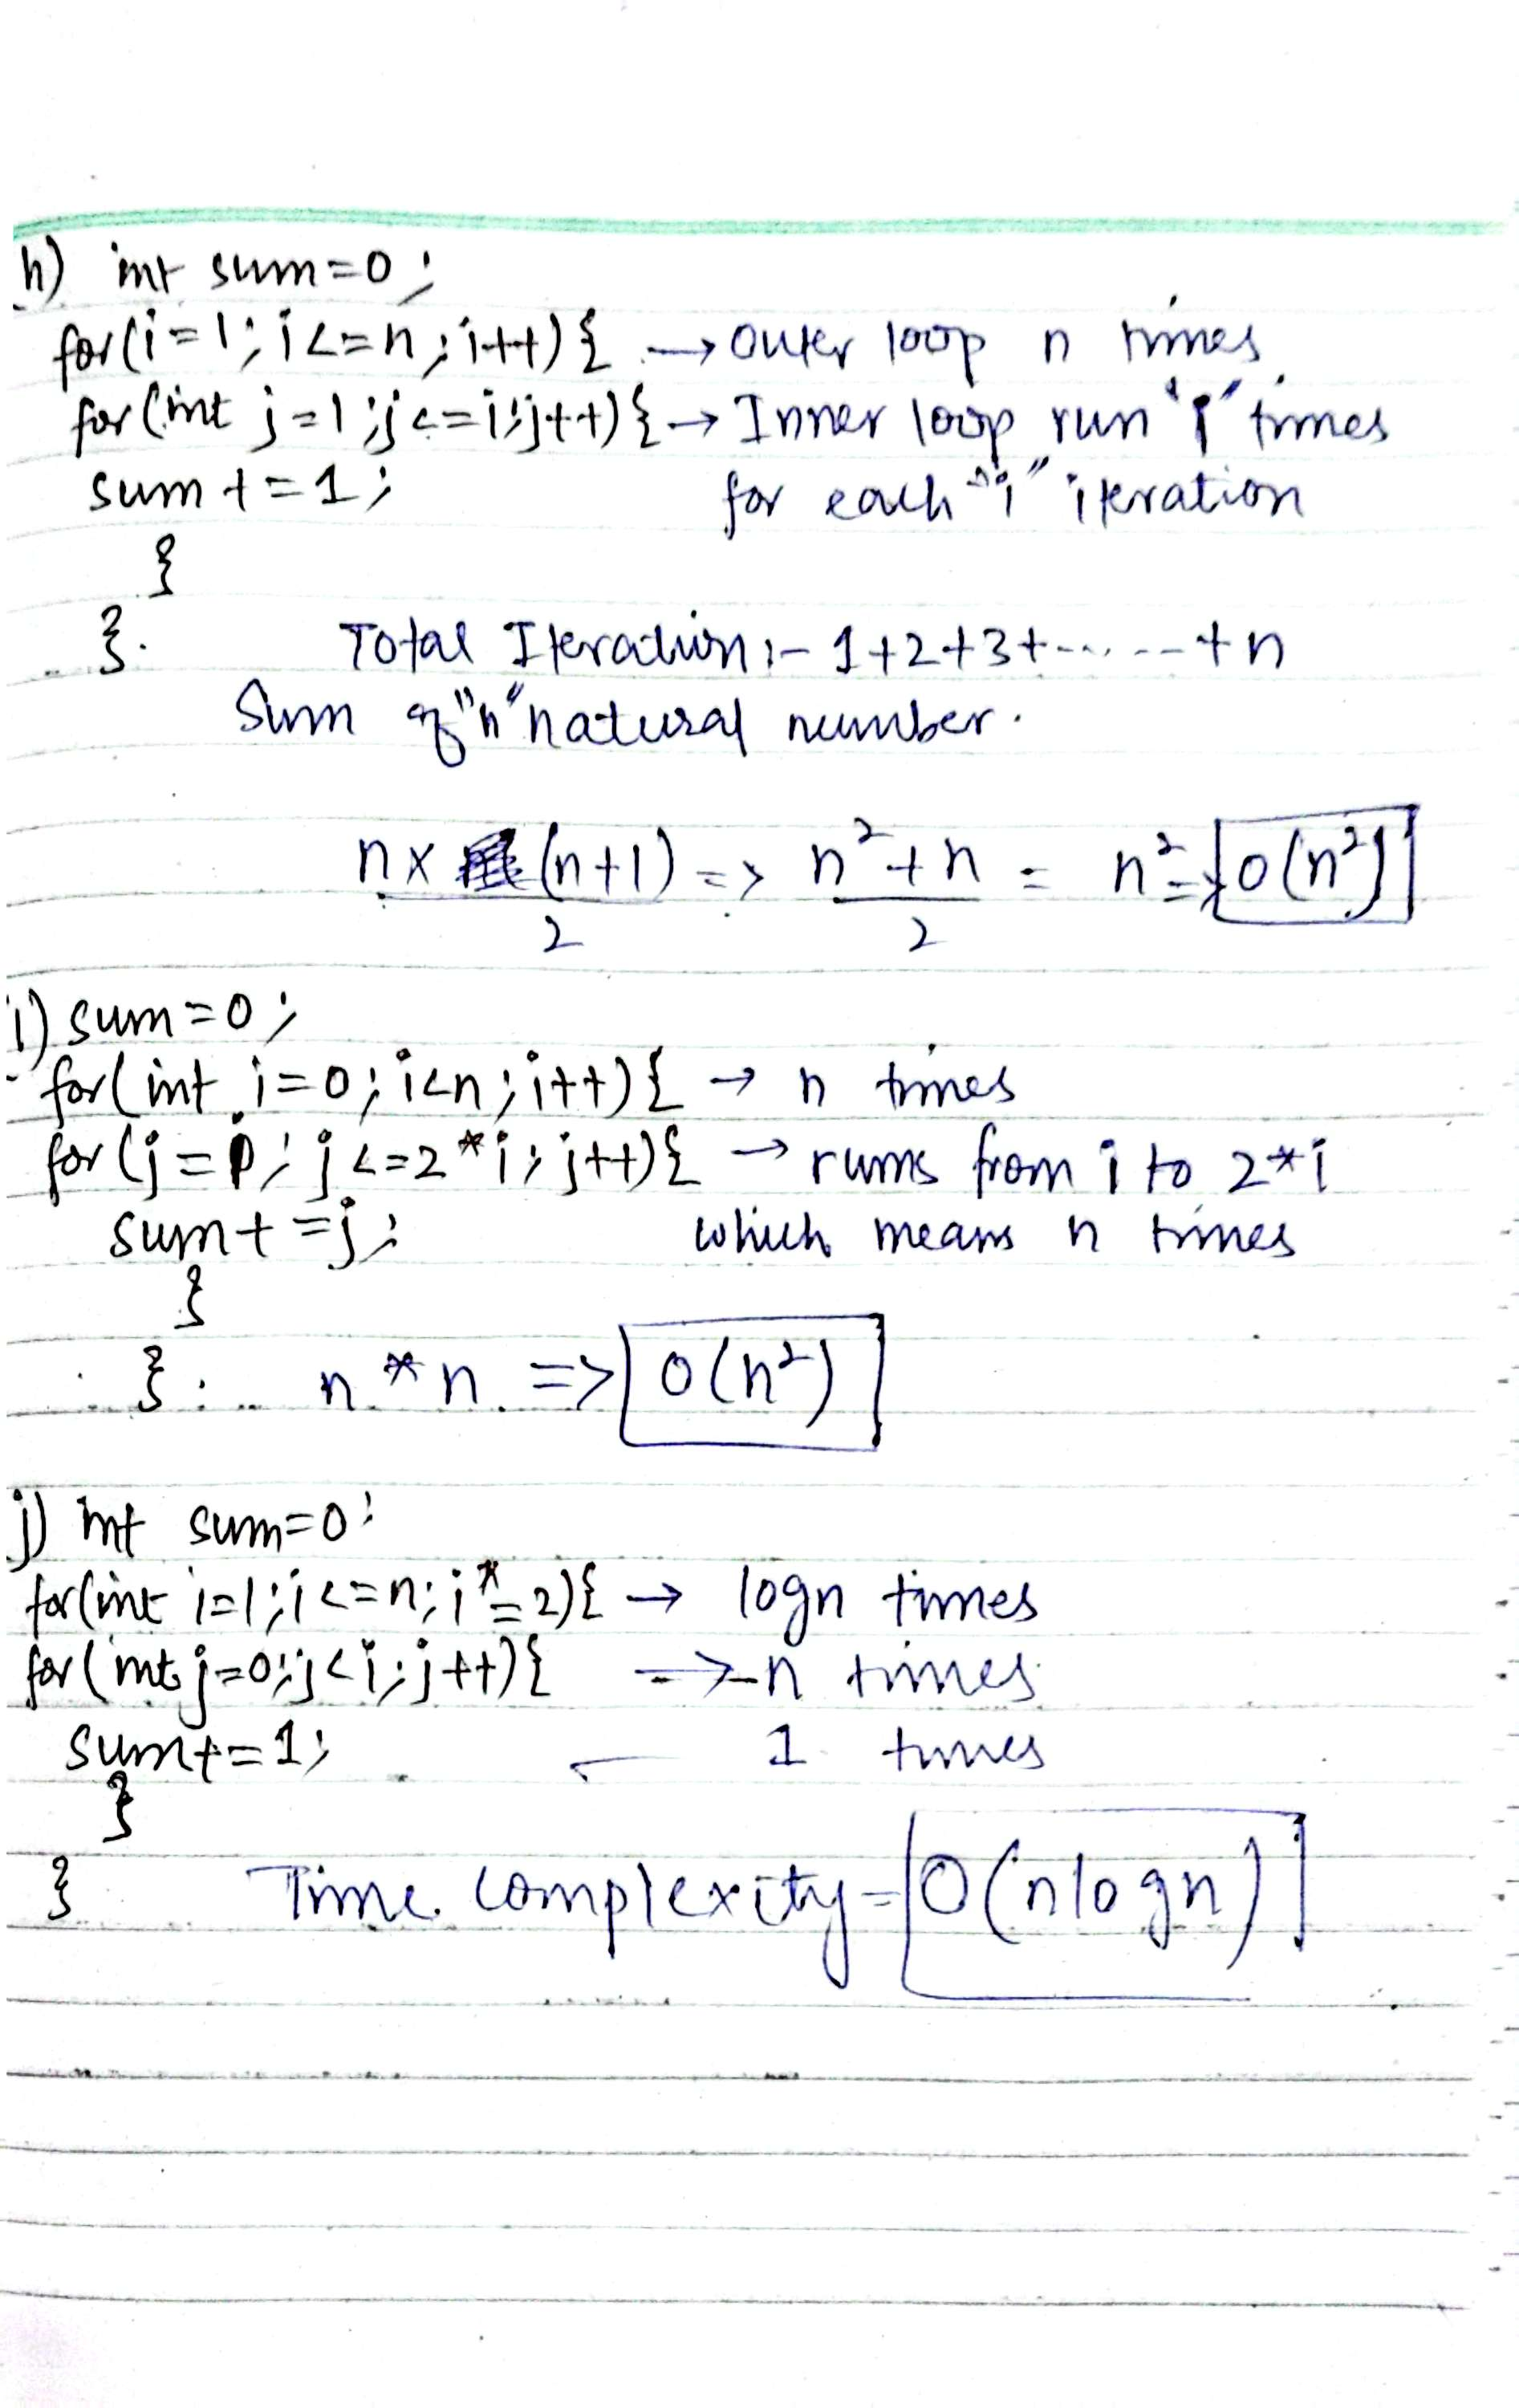 h) int sum=0;
for(i=1; i<=n; i++){ → outer loop n times
for(int j=1; j<=i; j++){ → Inner loop run "i" times
sum+=1; for each "i" iteration
}
}. Total Iteration:- 1+2+3+......+n
Sum of "n" natural number.
n×(n+1)/2 => n²+n/2 = n² => O(n²)
i) sum=0;
for(int i=0; i<n; i++){ → n times
for(j=i; j<=2*i; j++){ → runs from i to 2*i
sum+=j; which means n times
}
}. n*n => O(n²)
j) int sum=0;
for(int i=1; i<=n; i*=2){ → logn times
for(int j=0; j<i; j++){ => n times
sum+=1; — 1 times
}
} Time complexity = O(nlogn)